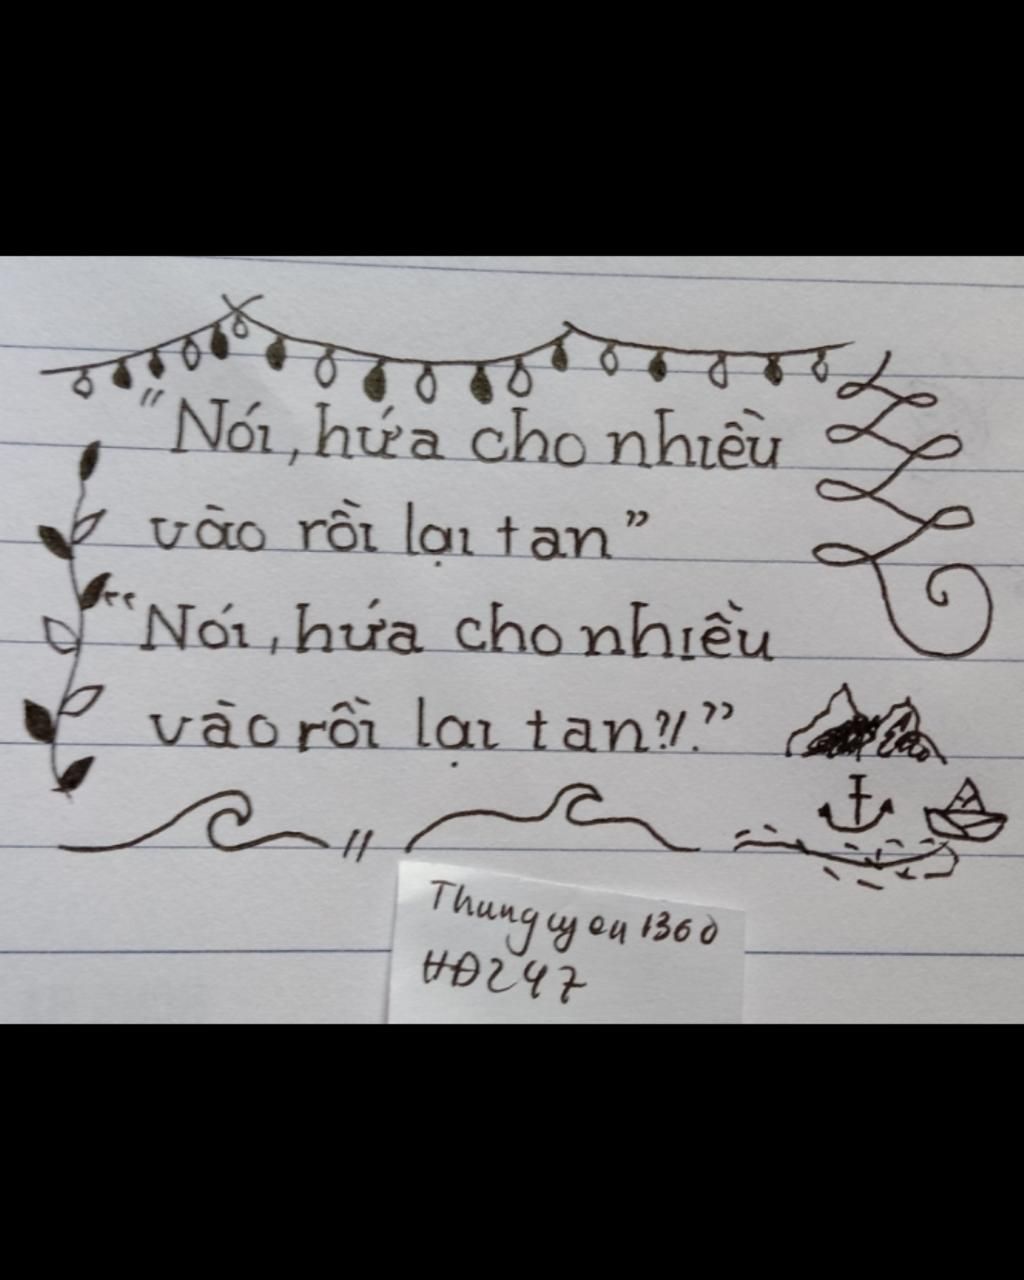 "Nói, hứa cho nhiều
vào rồi lại tan"
"Nói, hứa cho nhiều
vào rồi lại tan?!."
Thunguyen1360
HĐ247